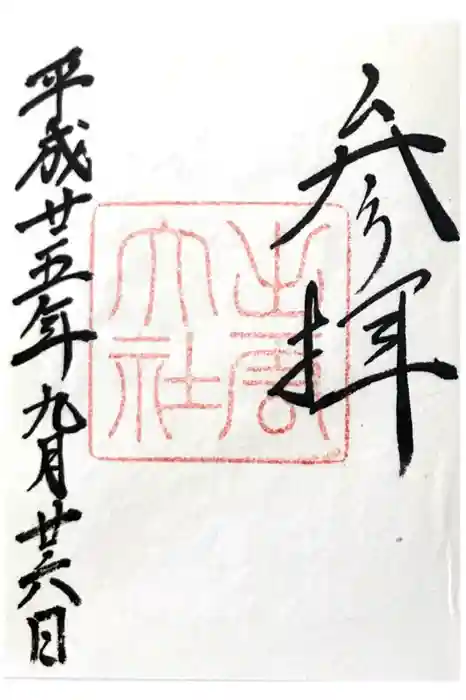 参拝
出雲
大社
平成廿五年九月廿六日